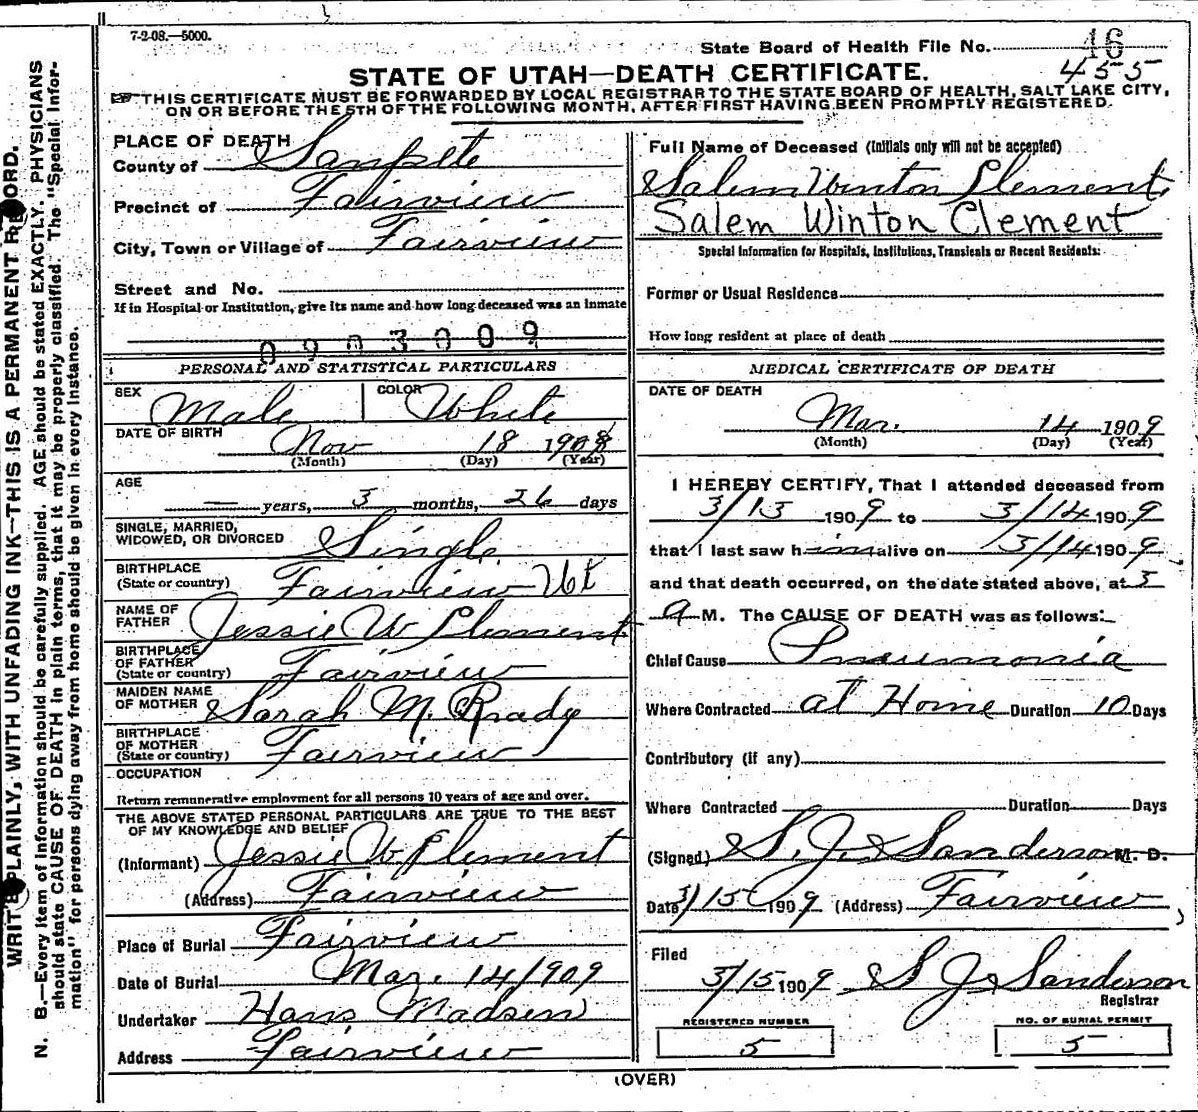 7-2-08.—5000.
State Board of Health File No. 46
455
STATE OF UTAH—DEATH CERTIFICATE.
THIS CERTIFICATE MUST BE FORWARDED BY LOCAL REGISTRAR TO THE STATE BOARD OF HEALTH, SALT LAKE CITY,
ON OR BEFORE THE 5TH OF THE FOLLOWING MONTH, AFTER FIRST HAVING BEEN PROMPTLY REGISTERED.
PLACE OF DEATH
County of Sanpete
Precinct of Fairview
City, Town or Village of Fairview
Street and No.
If in Hospital or Institution, give its name and how long deceased was an inmate
0903009
PERSONAL AND STATISTICAL PARTICULARS
SEX Male COLOR White
DATE OF BIRTH Nov 18 1908
(Month) (Day) (Year)
AGE
— years, 3 months, 26 days
SINGLE, MARRIED,
WIDOWED, OR DIVORCED Single
BIRTHPLACE
(State or country) Fairview Ut
NAME OF
FATHER Jessie W Clement
BIRTHPLACE
OF FATHER
(State or country) Fairview
MAIDEN NAME
OF MOTHER Sarah M. Brady
BIRTHPLACE
OF MOTHER
(State or country) Fairview
OCCUPATION
Return remunerative employment for all persons 10 years of age and over.
THE ABOVE STATED PERSONAL PARTICULARS ARE TRUE TO THE BEST
OF MY KNOWLEDGE AND BELIEF
(Informant) Jessie W Clement
(Address) Fairview
Place of Burial Fairview
Date of Burial Mar. 14/909
Undertaker Hans Madsen
Address Fairview
Full Name of Deceased (Initials only will not be accepted)
Salem Winton Clement
Salem Winton Clement
Special Information for Hospitals, Institutions, Transients or Recent Residents:
Former or Usual Residence
How long resident at place of death
MEDICAL CERTIFICATE OF DEATH
DATE OF DEATH
Mar. 14 1909
(Month) (Day) (Year)
I HEREBY CERTIFY, That I attended deceased from
3/13 1909 to 3/14 1909
that I last saw him alive on 3/14 1909
and that death occurred, on the date stated above, at 3
a M. The CAUSE OF DEATH was as follows:
Chief Cause Pneumonia
Where Contracted at Home Duration 10 Days
Contributory (if any)
Where Contracted Duration Days
(Signed) S. J. Sanderson M. D.
Date 3/15 1909 (Address) Fairview
Filed
3/15 1909 S J Sanderson
Registrar
REGISTERED NUMBER
5
NO. OF BURIAL PERMIT
5
(OVER)
WRITE PLAINLY, WITH UNFADING INK—THIS IS A PERMANENT RECORD.
N. B.—Every item of information should be carefully supplied. AGE should be stated EXACTLY. PHYSICIANS
should state CAUSE OF DEATH in plain terms, that it may be properly classified. The "Special Infor-
mation" for persons dying away from home should be given in every instance.